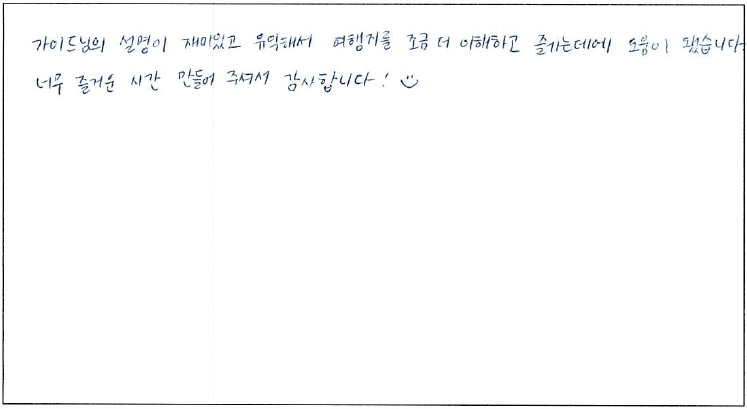 가이드님의 설명이 재미있고 유익해서 여행지를 조금 더 이해하고 즐기는데에 도움이 됐습니다.
너무 즐거운 시간 만들어 주셔서 감사합니다! :)